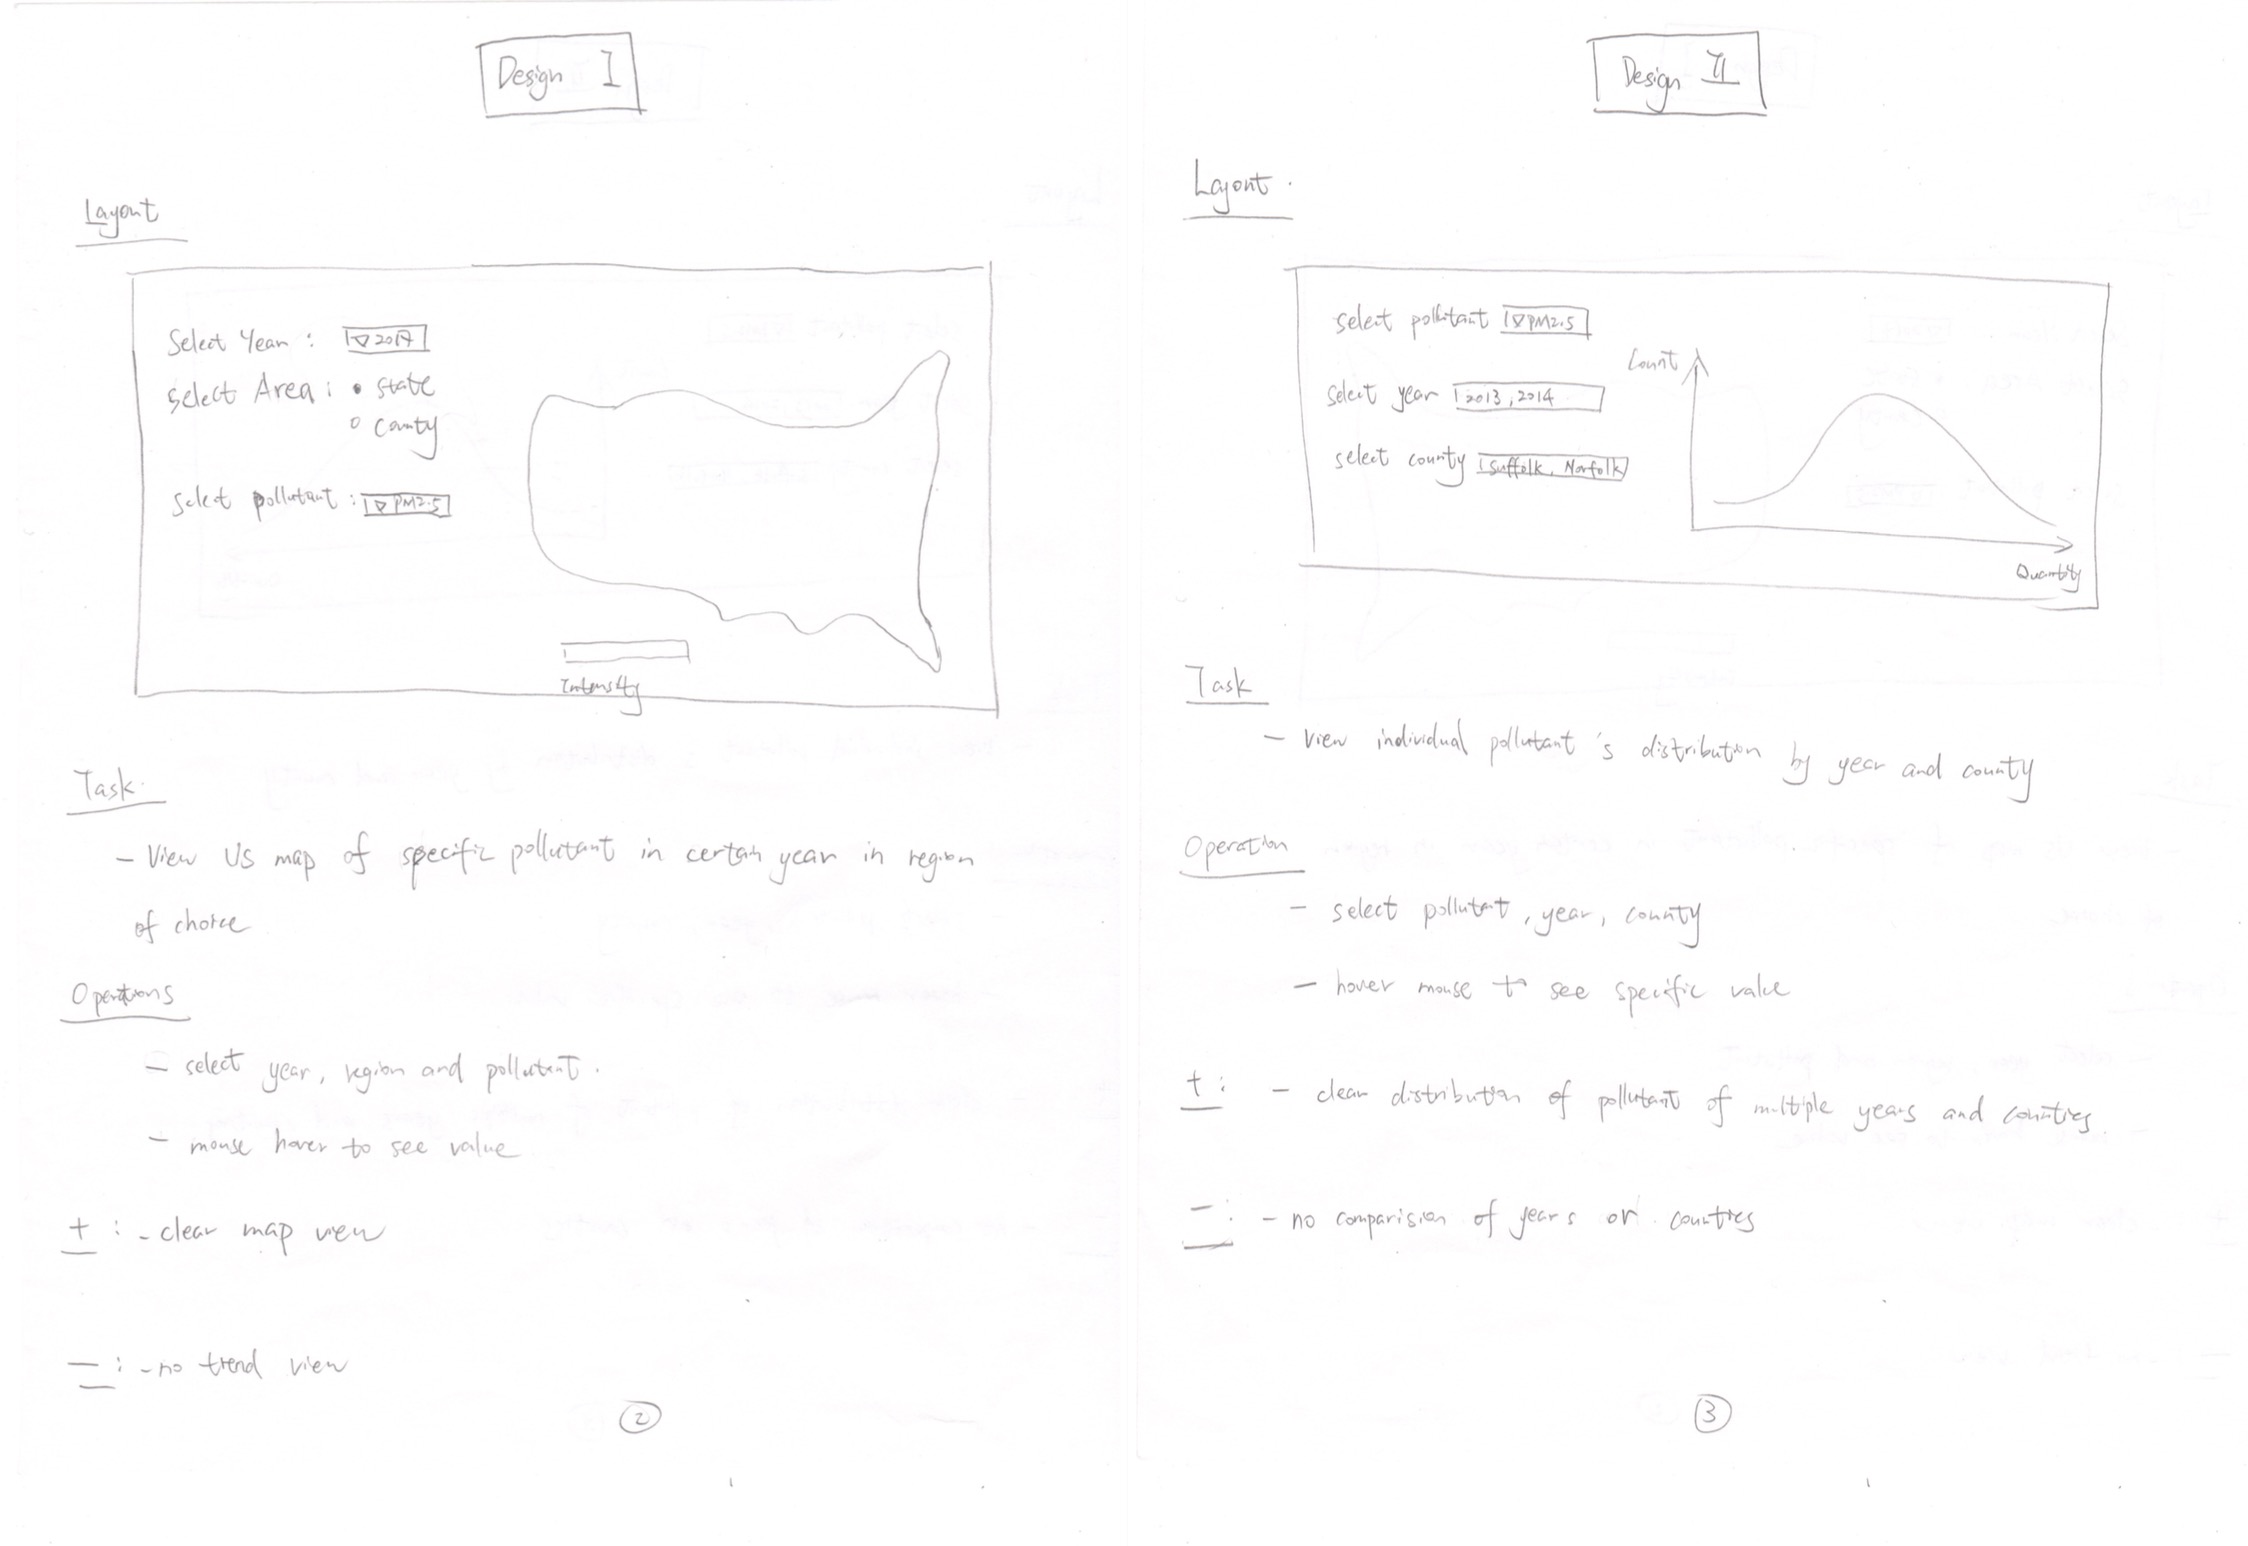 Design I
Layout
Select Year : 2017
Select Area : state
county
Select pollutant : PM2.5
Intensity
Task.
- View US map of specific pollutant in certain year in region
of choice
Operations
- select year, region and pollutant.
- mouse hover to see value
+ : - clear map view
- : - no trend view
2
Design II
Layout.
select pollutant PM2.5
select year 2013, 2014
select county Suffolk, Norfolk
Count
Quantity
Task
- View individual pollutant's distribution by year and county
Operation
- select pollutant, year, county
- hover mouse to see specific value
+ : - clear distribution of pollutant of multiple years and counties.
- : - no comparision of years or counties
3